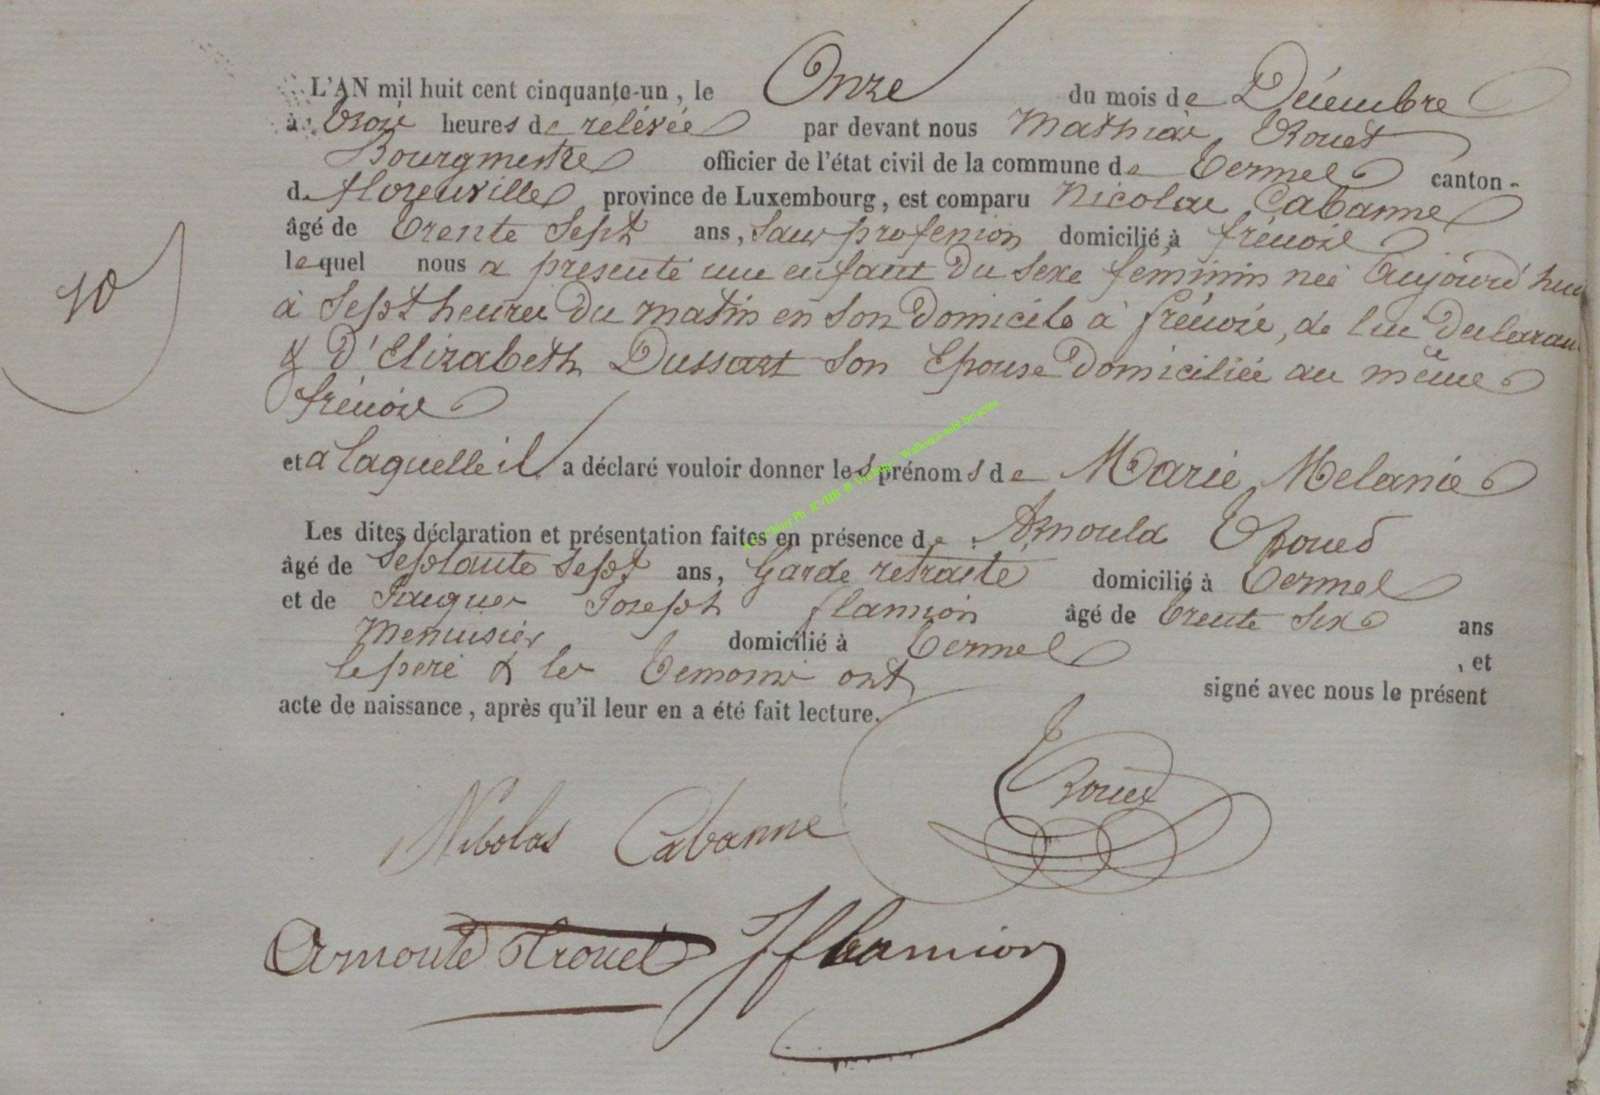 L'AN mil huit cent cinquante-un, le Onze du mois de Décembre
à trois heures de relévée par devant nous Mathias Trouet
Bourgmestre officier de l'état civil de la commune de Termes canton
de florenville province de Luxembourg, est comparu Nicolas Cabanne
âgé de trente Sept ans, Sans profession domicilié à frénois
lequel nous a présenté une enfant du sexe feminin née aujourd'hui
à Sept heures du matin en son domicile à frénois, de lui déclarant
& d'Elizabeth Dussart son Epouse domiciliée au même
frénois
10
et a laquelle il a déclaré vouloir donner les prénoms de Marie Melanie
Les dites déclaration et présentation faites en présence de Arnould Troued
âgé de Septante Sept ans, Garde retraité domicilié à Termes
et de Jacques Joseph flamion âgé de trente six ans
Menuisier domicilié à Termes , et
le pere & les temoins ont signé avec nous le présent
acte de naissance, après qu'il leur en a été fait lecture.
Trouet
Nicolas Cabanne
Arnould trouet JJflamion